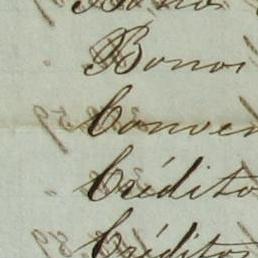 Bonos
Bonos
Conven
" Crédito
Créditos